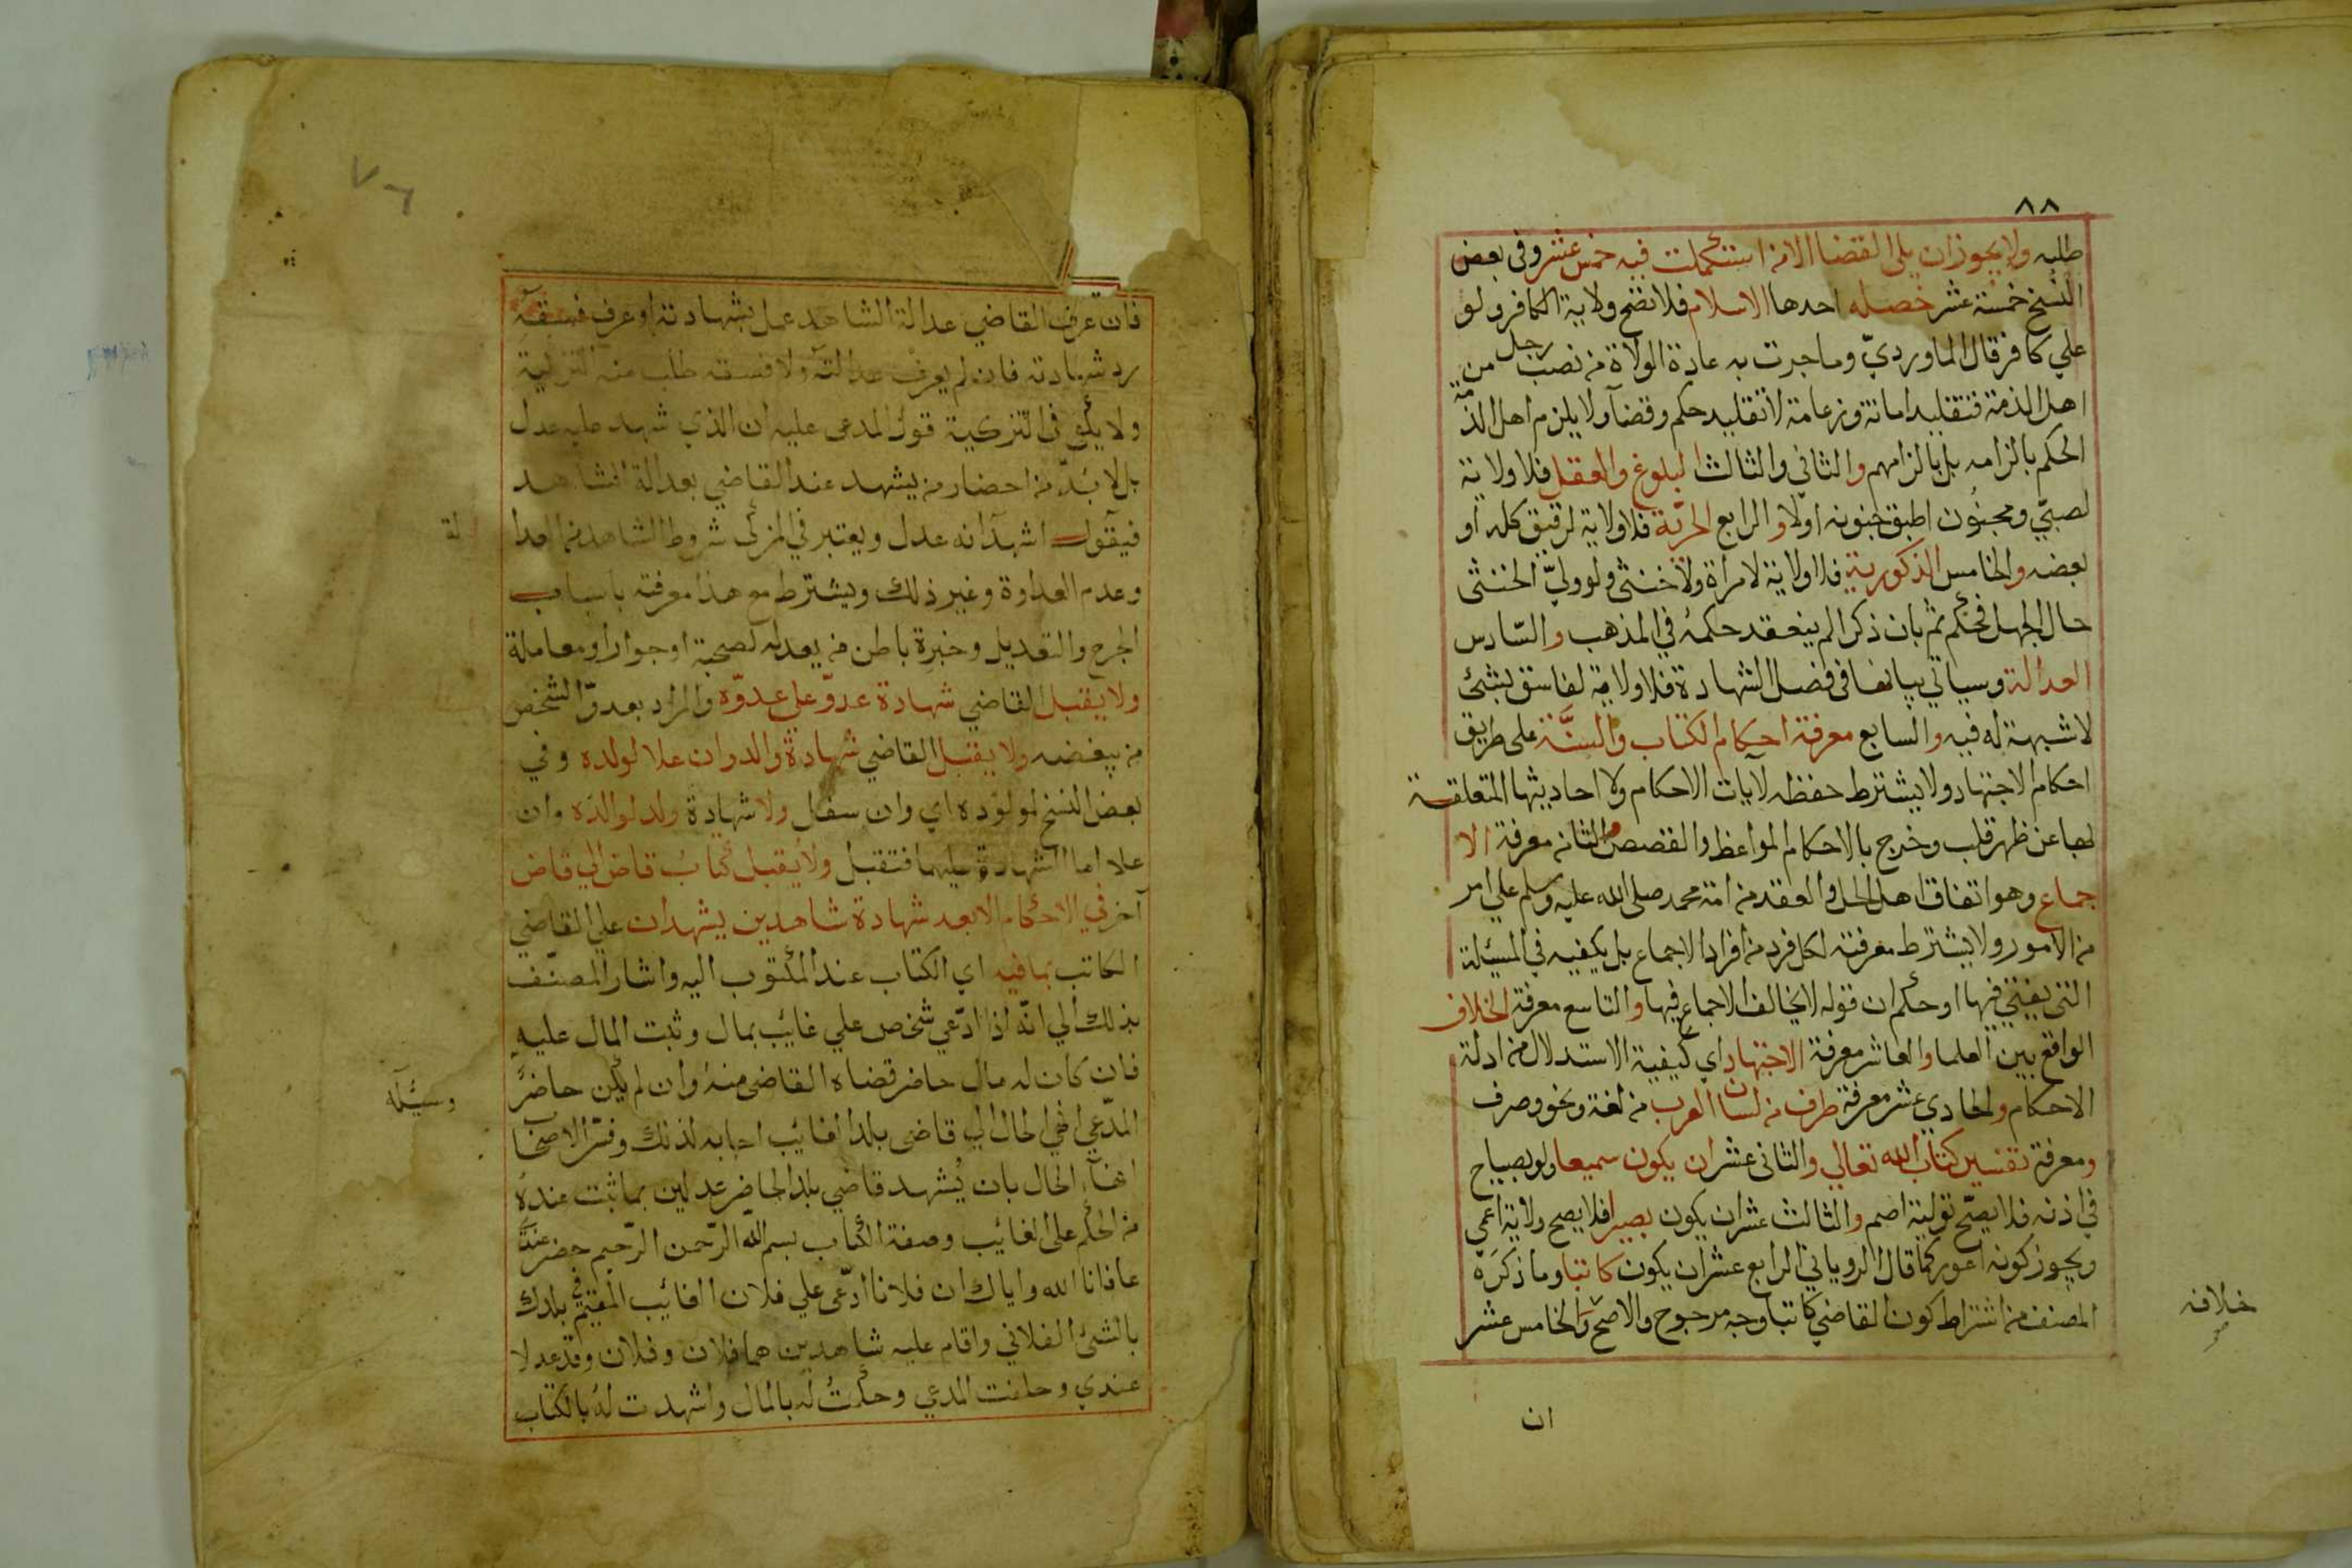 ٨٨
طلبه ولا يجوز ان يلى القضا الا من استكملت فيه خمس عشر وفى بعض
النسخ خمسة عشر خصله احدها الاسلام فلا تصح ولاية الكافر ولو
علي كافر قال الماورديّ وما جرت به عادة الولاة من نصب رجل من
اهل الذمة فتقليد امانة وزعامة لا تقليد حكم وقضآ ولا يلزم اهل الذمة
الحكم بالزامه بل بالزامهم والثاني والثالث البلوغ والعقل فلا ولاية
لصبيّ ومجنُون اطبق جنونه اولا والرابع الحريّة فلا ولاية لرقيق كله او
بعضه والخامس الذكورية فلا ولاية لامراة ولا خنثى ولو وليّ الخنثى
حال الجهل فحكم ثم بان ذكرا لم ينعقد حكمهُ في المذهب والسّادس
العدالة وسياتي بيانها فى فصل الشهادة فلا ولاية لفاسق بشئ
لا شبهة له فيه والسابع معرفة احكام الكتاب والسنَّة على طريق
احكام الاجتهاد ولا يشترط حفظه لآيات الاحكام ولا احاديثها المتعلقة
بها عن ظهر قلب وخرج بالاحكام المواعظ والقصص والثامنه معرفة الا
جماع وهو اتفاق اهل الحل والعقد من امة محمد صلى الله عليه وسلم علي امر
من الامور ولا يشترط معرفته لكل فرد من افراد الاجماع بل يكفيه في المسئلة
التى يفتي فيها او حكم ان قوله لا يخالف الاجماع فيها والتاسع معرفة الخلاف
الواقع بين العلما والعاشر معرفة الاجتهاد اي كيفية الاستدلال من ادلة
الاحكام والحادي عشر معرفة طرف من لسان العرب من لغة ونحو وصرف
ومعرفة تفسير كتاب الله تعالي والثانى عشر ان يكون سميعا ولو بصياح
في اذنه فلا يصحّ تولية اصم والثالث عشر ان يكون بصيرا فلا يصح ولاية اعمي
ويجوز كونه اعور كما قال الروياني الرابع عشر ان يكون كاتبا وما ذكرَه
المصنف من اشتراط كون القاضي كاتبا وجه مرجوح والاصح والخامس عشر
خلافه
صح
ان
٧٦
فان عرف القاضي عدالة الشاهد عمل بشهادته او عرف فسقه
رد شهادته فان لم يعرف عدالته ولا فسقه طلب منه التزكية
ولا يكفي فى التزكية قول المدعى عليه ان الذي شهد عليه عدل
بل لا بُدّ من احضار من يشهد عند القاضي بعدالة الشاهد
فيقول اشهد انه عدل ويعتبر في المزكى شروط الشاهد من العدا
لة
وعدم العداوة وغير ذلك ويشترط مع هذا معرفته باسباب
الجرح والتعديل وخبرة باطن من يعدله لصحبة او جوار او معاملة
ولا يقبل القاضي شهادة عدوّ على عدوّه والمراد بعدوّ الشخص
من يبغضه ولا يقبل القاضي شهادة والد وان علا لولده وفي
بعض النسخ لمولوده اي وان سفل ولا شهادة ولد لوالده وان
علا اما الشهادة عليهما فتقبل ولا يقبل كتابُ قاض الي قاض
آخر في الاحكام الا بعد شهادة شاهدين يشهدان علي القاضي
الكاتب بما فيه اي الكتاب عند المكتوب اليه واشار المصنّف
بذلك الي انّه اذا ادّعي شخص علي غائب بمال وثبت المال عليه
فان كان له مال حاضر قضاه القاضى منهُ وان لم يكن حاضرً
وسئله
المدّعي انهي الحال الي قاضى بلد الغائب اجابه لذلك وفسّر الاصحا
انهآء الحال بان يُشهد قاضي بلد الحاضر عدلين بما ثبت عندهُ
من الحكم على الغائب وصفة الكتاب بسم الله الرّحمن الرّحيم حضر عند
عافانا الله واياك ان فلانا ادّعى علي فلان الغائب المقيم في بلدك
بالشئ الفلاني واقام عليه شاهدين هما فلان وفلان وقد عدلا
عندي وحلفت المدعي وحكمتُ له بالمال واشهدت لهُ بالكتاب